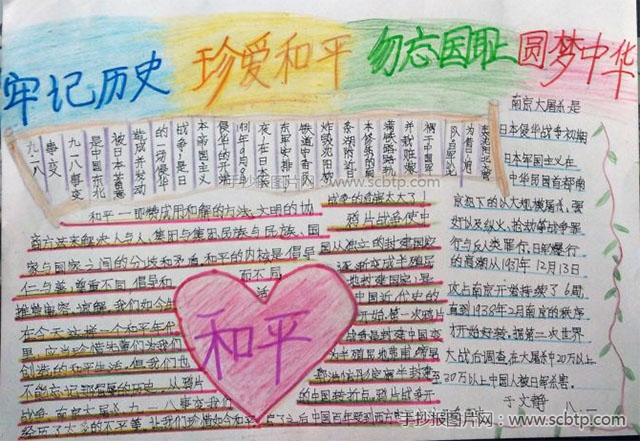 牢记历史 珍爱和平 勿忘国耻 圆梦中华
南京大屠杀是
日本侵华战争初期
日本军国主义在
中华民国首都南
京犯下的大规模屠杀、强
奸以及纵火、抢劫等战争罪
行与反人类罪行。日军暴行
的高潮从1937年12月13日
攻占南京开始持续了6周,
直到1938年2月南京的秩序
才开始好转。据第二次世界
大战后调查在大屠杀中20万以上
至30万以上中国人被日军杀害。
于文静 八一
九一八
事变
九一八事变
是中国东北
被日本蓄意
造成并发动
的一场侵华
战争,是日
本帝国主义
侵华的开端
夜,在日本关
东军安排下,
铁道守备队
炸毁沈阳柳
条湖附近日
本修筑的南
满铁路路轨
并栽赃嫁
祸于中国军
队
手抄报图片网 www.scbtp.com
和平一即赞成用和解的方法、文明的协
商方法来解决人与人、集团与集团、民族与民族、国
家与国家之间的分歧和矛盾。和平的内核是倡导
仁与善,尊重不同,倡导和而不同,
推崇宽容、谅解。我们如今活
在今天这样一个和平年代
里,应当珍惜先辈们为我们
创造的和平生活。但我们也
不能忘记那屈辱的历史。从鸦片
战争、南京大屠杀、九一八事变我们
经历了太多的不平等,让我们珍惜如今和平
战争的危害太大了!
鸦片战争使中
国从独立的封建国家
逐渐变成半殖民
地封建国家,是
中国近代史的
开始。第一次鸦片
战争是封建中国变
为半殖民地
半封建
的中国转折点。鸦片战争开
了之后中国百年受到西方
和平
手抄报图片网:www.scbtp.com